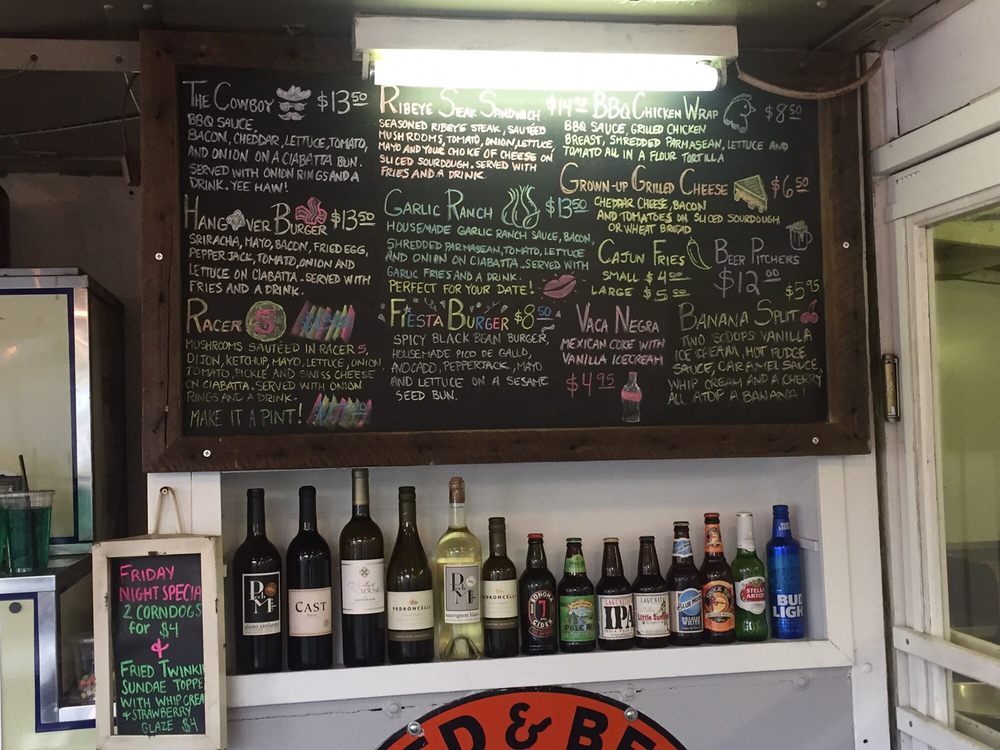 THE COWBOY $13.50
BBQ SAUCE.
BACON, CHEDDAR, LETTUCE, TOMATO,
AND ONION ON A CIABATTA BUN.
SERVED WITH ONION RINGS AND A
DRINK. YEE HAW!
HANGOVER BURGER $13.50
SRIRACHA, MAYO, BACON, FRIED EGG,
PEPPER JACK, TOMATO, ONION AND
LETTUCE ON CIABATTA. SERVED WITH
FRIES AND A DRINK.
RACER 5
MUSHROOMS SAUTÉED IN RACER 5,
DIJON, KETCHUP, MAYO, LETTUCE, ONION
TOMATO, PICKLE AND SWISS CHEESE
ON CIABATTA. SERVED WITH ONION
RINGS AND A DRINK.
MAKE IT A PINT!
RIBEYE STEAK SANDWICH $14.50
SEASONED RIBEYE STEAK, SAUTÉED
MUSHROOMS, TOMATO, ONION, LETTUCE,
MAYO AND YOUR CHOICE OF CHEESE ON
SLICED SOURDOUGH. SERVED WITH
FRIES AND A DRINK.
GARLIC RANCH $13.50
HOUSEMADE GARLIC RANCH SAUCE, BACON,
SHREDDED PARMASEAN, TOMATO, LETTUCE
AND ONION ON CIABATTA. SERVED WITH
GARLIC FRIES AND A DRINK.
PERFECT FOR YOUR DATE!
FIESTA BURGER $8.50
SPICY BLACK BEAN BURGER,
HOUSEMADE PICO DE GALLO,
AVOCADO, PEPPERJACK, MAYO
AND LETTUCE ON A SESAME
SEED BUN.
BBQ CHICKEN WRAP $8.50
BBQ SAUCE, GRILLED CHICKEN
BREAST, SHREDDED PARMASEAN, LETTUCE AND
TOMATO ALL IN A FLOUR TORTILLA
GROWN-UP GRILLED CHEESE $6.50
CHEDDAR CHEESE, BACON
AND TOMATOES ON SLICED SOURDOUGH
OR WHEAT BREAD
CAJUN FRIES
SMALL $4.00
LARGE $5.00
BEER PITCHERS
$12.00
VACA NEGRA
MEXICAN COKE WITH
VANILLA ICECREAM
$4.95
BANANA SPLIT $5.95
TWO SCOOPS VANILLA
ICE CREAM, HOT FUDGE
SAUCE, CARAMEL SAUCE,
WHIP CREAM AND A CHERRY
ALL ATOP A BANANA!
FRIDAY
NIGHT SPECIA
2 CORNDOGS
for $4
&
FRIED TWINKI
SUNDAE TOPPE
WITH WHIP CREA
& STRAWBERRY
GLAZE $4
CAST
YOUNG
PEDRONCELLI
sauvignon blanc
PEDRONCELLI
SONOMA
CIDER
PALE ALE
LAGUNITAS
IPA
LAGUNITAS
BLUE MOON
BELGIAN WHITE
STELLA ARTOIS
BUD LIGHT
ED & BE